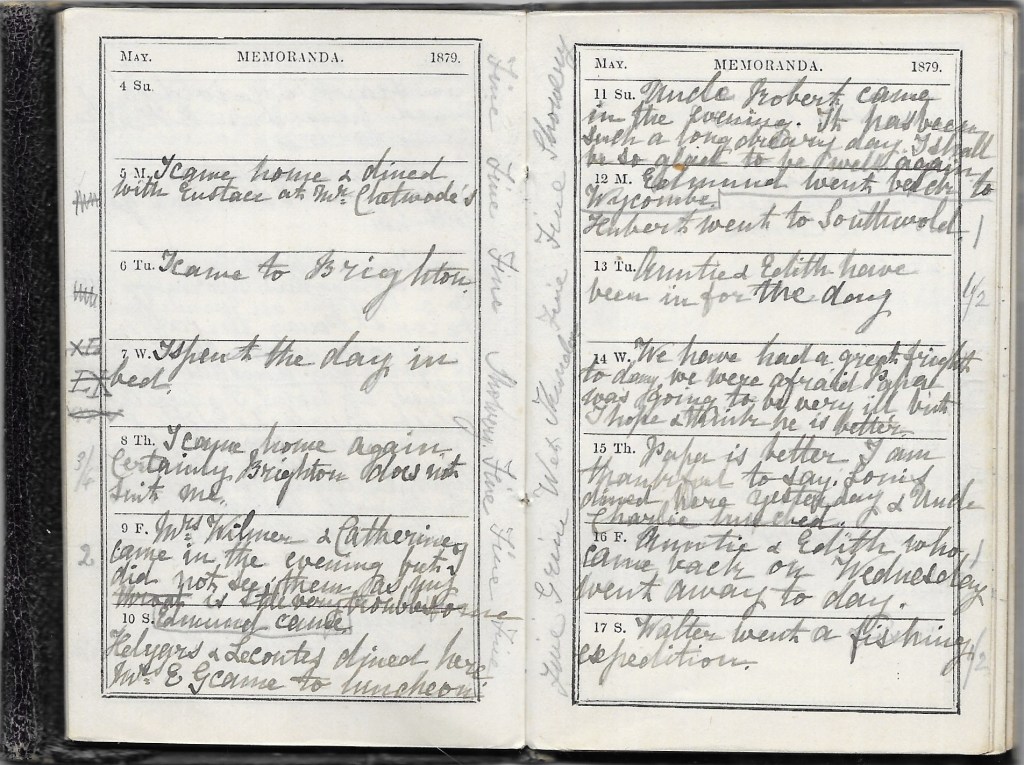 MAY. MEMORANDA. 1879.
4 Su.
5 M. I came home & dined
with Eustace at Mr. Chetwode's
6 Tu. I came to Brighton.
7 W. I spent the day in
bed.
8 Th. I came home again.
Certainly Brighton does not
suit me.
9 F. Mrs Wilmer & Catherine
came in the evening but I
did not see them as my
throat is still very troublesome
10 S. Edmund came.
Helyars & Lecontes dined here
Mr. E G came to luncheon
3/4
2
Fine Fine Fine Showers Fine Fine Fine
MAY. MEMORANDA. 1879.
11 Su. Uncle Robert came
in the evening. It has been
such a long dreary day. I shall
be so glad to be well again
12 M. Edmund went back to
Wycombe.
Hubert went to Southwold.
13 Tu. Auntie & Edith have
been in for the day
14 W. We have had a great fright
to day, we were afraid Papa
was going to be very ill but
I hope & think he is better.
15 Th. Papa is better I am
thankful to say.
dined here yesterday & Uncle
Charlie lunched.
16 F. Auntie & Edith who
came back on Wednesday
went away to day.
17 S. Walter went a fishing
expedition.
1
1/2
1
1/2
Fine Wet Fine Fine Showery